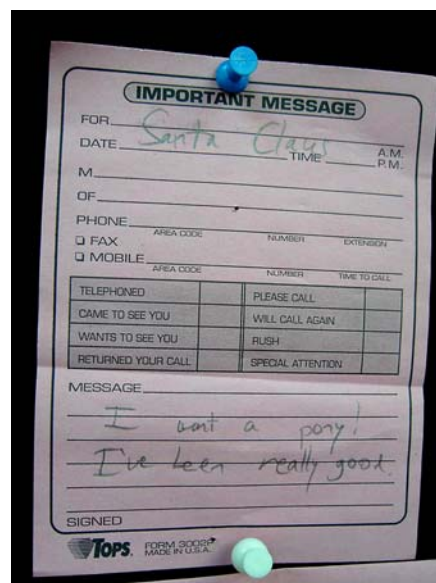 IMPORTANT MESSAGE
FOR
Santa Claus
DATE TIME A.M.
P.M.
M
OF
PHONE
AREA CODE NUMBER EXTENSION
FAX
MOBILE
AREA CODE NUMBER TIME TO CALL
TELEPHONED PLEASE CALL
CAME TO SEE YOU WILL CALL AGAIN
WANTS TO SEE YOU RUSH
RETURNED YOUR CALL SPECIAL ATTENTION
MESSAGE
I want a pony!
I've been really good.
SIGNED
TOPS. FORM 3002P
MADE IN U.S.A.